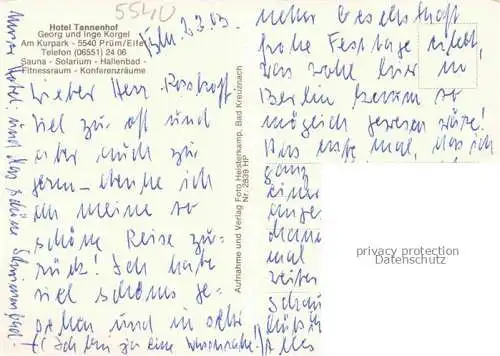 5540
Hotel Tannenhof
Georg und Inge Korgel
Am Kurpark - 5540 Prüm/Eifel
Telefon (06551) 24 06
Sauna - Solarium - Hallenbad -
Fitnessraum - Konferenzräume
Bln. 2.3.83
Lieber Herr
viel zu oft und
aber auch zu
gern – denke ich
an meine so
schöne Reise zu-
rück! Ich habe
viel schönes ge-
sehen und in
(Ich bin ja eine
Unser Hotel und das schöne Schwimmbad.
Aufnahme und Verlag Foto Heisterkamp, Bad Kreuznach
Nr. 2839 HP
netter Gesellschaft
frohe Festtage erlebt,
was wohl hier in
Berlin kaum so
möglich gewesen wäre!
Das erste mal, das ich
ganz
einer
mal
weiter
alles
privacy protection
Datenschutz